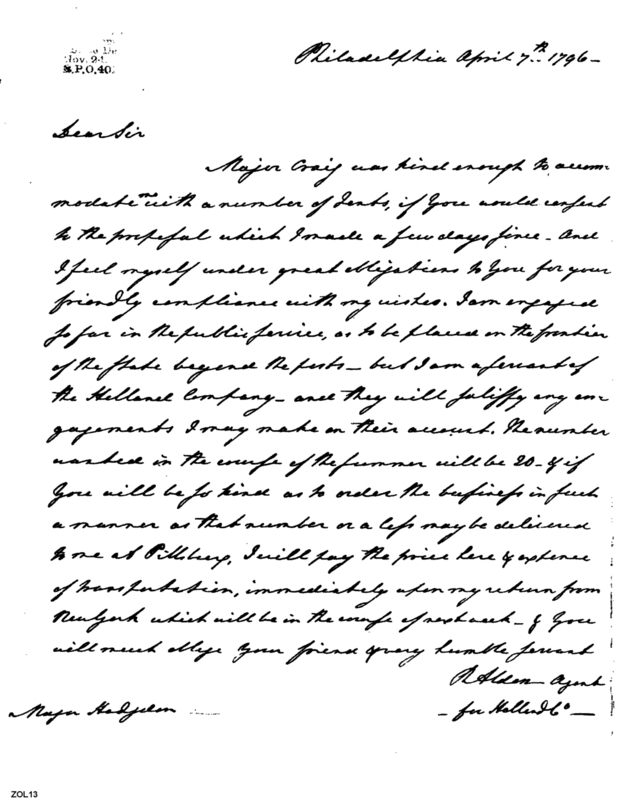 Nov. 24
S.P.O. 40
Philadelphia April 7th 1796 —
Dear Sir
Major Craig was kind enough to accom-
modate me with a number of Tents, if You would consent
to the proposal which I made a few days since — And
I feel myself under great obligations to You for your
friendly compliance with my wishes. I am engaged
so far in the public service, as to be placed on the frontier
of the State beyond the posts — but I am a servant of
the Holland Company — and they will satisfy any en-
gagements I may make on their account. The number
wanted in the course of the summer will be 20 — & if
You will be so kind as to order the business in such
a manner as that number or a less may be delivered
to me at Pittsburg, I will pay the price here & expence
of transportation, immediately upon my return from
New York which will be in the course of next week — & You
will much oblige Your friend & very humble servant
R Alden Agent
Major Hodgdon
— for Holland Co —
ZOL13